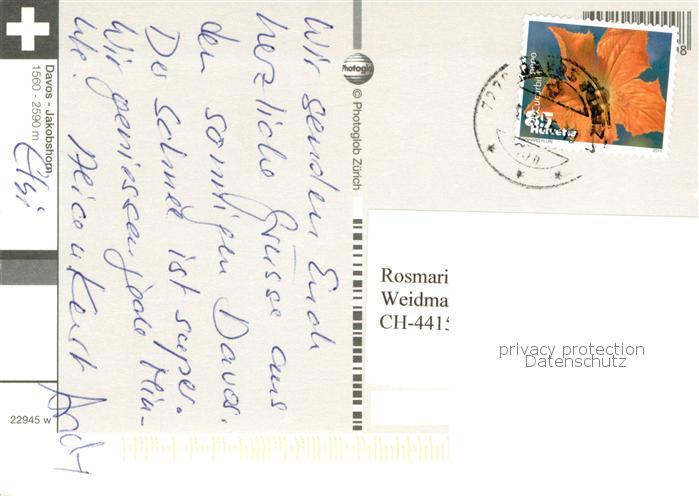 Wir senden Euch
herzliche Grüsse aus
dem sonnigen Davos.
Der Schnee ist super.
Wir geniessen jede Minu-
te!
Elsi
Andy
Davos - Jakobshorn
1560 - 2590 m
22945 w
Photoglob
© Photoglob Zürich
Helvetia
Rosmari
Weidma
CH-4415
privacy protection
Datenschutz